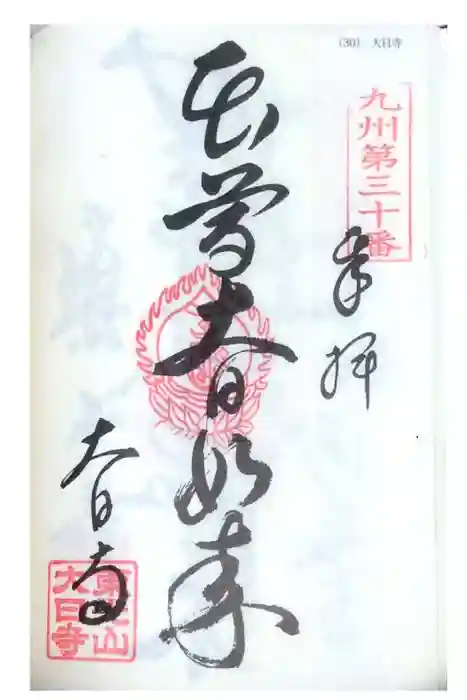 (30) 大日寺
九州第三十番
奉拝
本尊大日如来
大日寺
大日寺